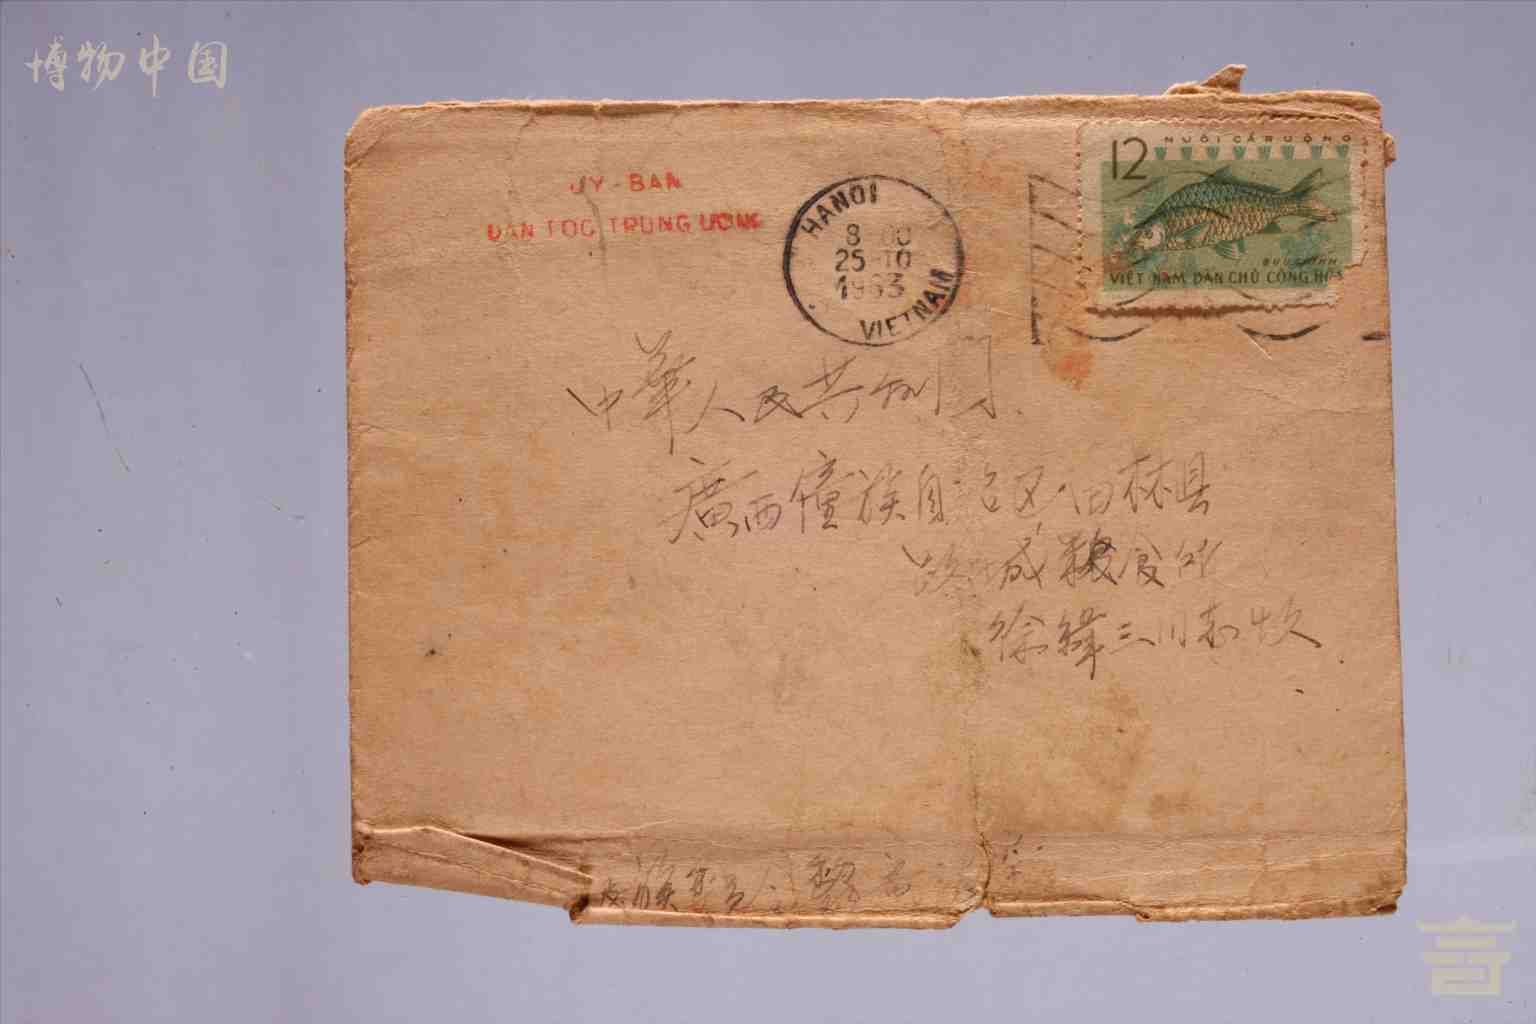 博物中国
UY-BAN
DAN TOC TRUNG UONG
HANOI
8 00
25-10
1963
VIETNAM
12
NUÔI CÁ RUỘNG
BƯU CHÍNH
VIỆT NAM DÂN CHỦ CỘNG HÒA
中華人民共和
廣西僮族自治区田林县
路城粮食所
徐 三同志收
族委員